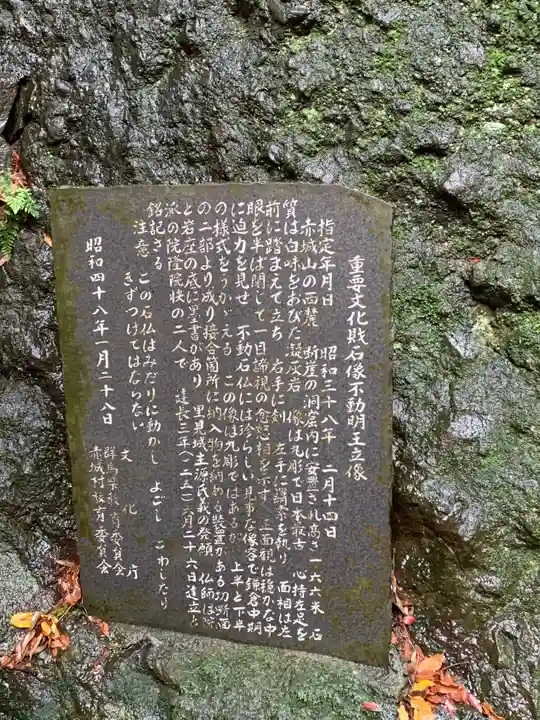 重要文化財石像不動明王立像
指定年月日 昭和三十八年 二月十四日
赤城山の西麓 断崖の洞窟内に安置され高さ一六六米 石
質は白味をおびた凝灰岩 像は丸彫で日本最古 心持左足を
前に踏まえて立ち 右手に剣 左手に羂索を執り 面相は左
眼を半ば閉じて一目諦視の忿怒相を示す 三面観は穏かな中
に迫力を見せ 不動石仏には珍らしい見事な像容で鎌倉中期
の様式をうかがえる この像は丸彫ではあるが 上半と下半
の二部より成り接合箇所に納入物を納める装置がある切断面
と岩座の底に墨書があり 里見城主源氏義の発願 仏師は院
派の院隆院快の二人で 建長三年(一二五一)六月二十六日造立と
銘記さる
注意 この石仏はみだりに動かし よごし こわしたり
きずつけてはならない
文化庁
群馬県教育委員会
昭和四十八年一月二十八日
赤城村教育委員会